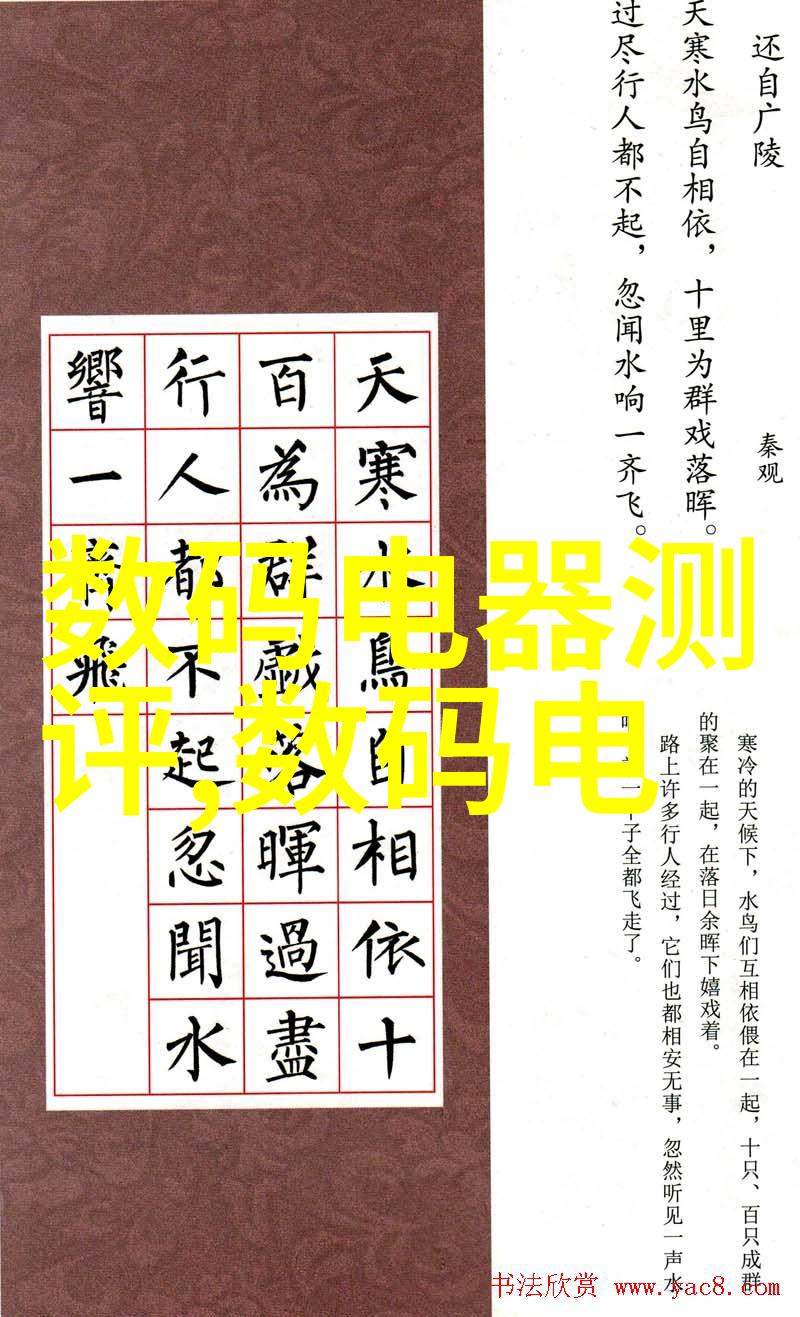 还自广陵
秦观
天寒水鸟自相依，十里为群戏落晖。
过尽行人都不起，忽闻水响一齐飞。
天寒水鳥自相依十
百為群戲落暉過盡
行人都不起忽聞水
響一齊飛
数码电器测
评,数码电
寒冷的天候下，水鸟们互相依偎在一起，十只、百只成群
的聚在一起，在落日余晖下嬉戏着。
路上许多行人经过，它们也都相安无事，忽然听见一声水
子全都飞走了。
书法欣赏 www.yac8.com